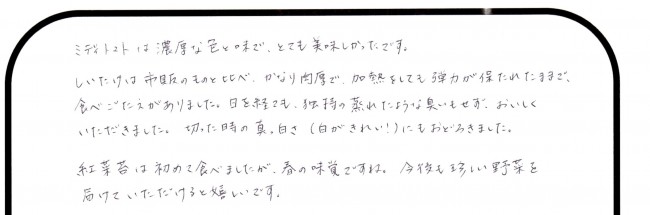 ミディトマトは濃厚な色と味で、とても美味しかったです。
しいたけは市販のものと比べ、かなり肉厚で、加熱をしても弾力が保たれたままで、
食べごたえがありました。日を経ても、独特の蒸れたような臭いもせず、おいしく
いただきました。切った時の真っ白さ(白がきれい!)にもおどろきました。
紅菜苔は初めて食べましたが、春の味覚ですね。今後も珍しい野菜を
届けていただけると嬉しいです。